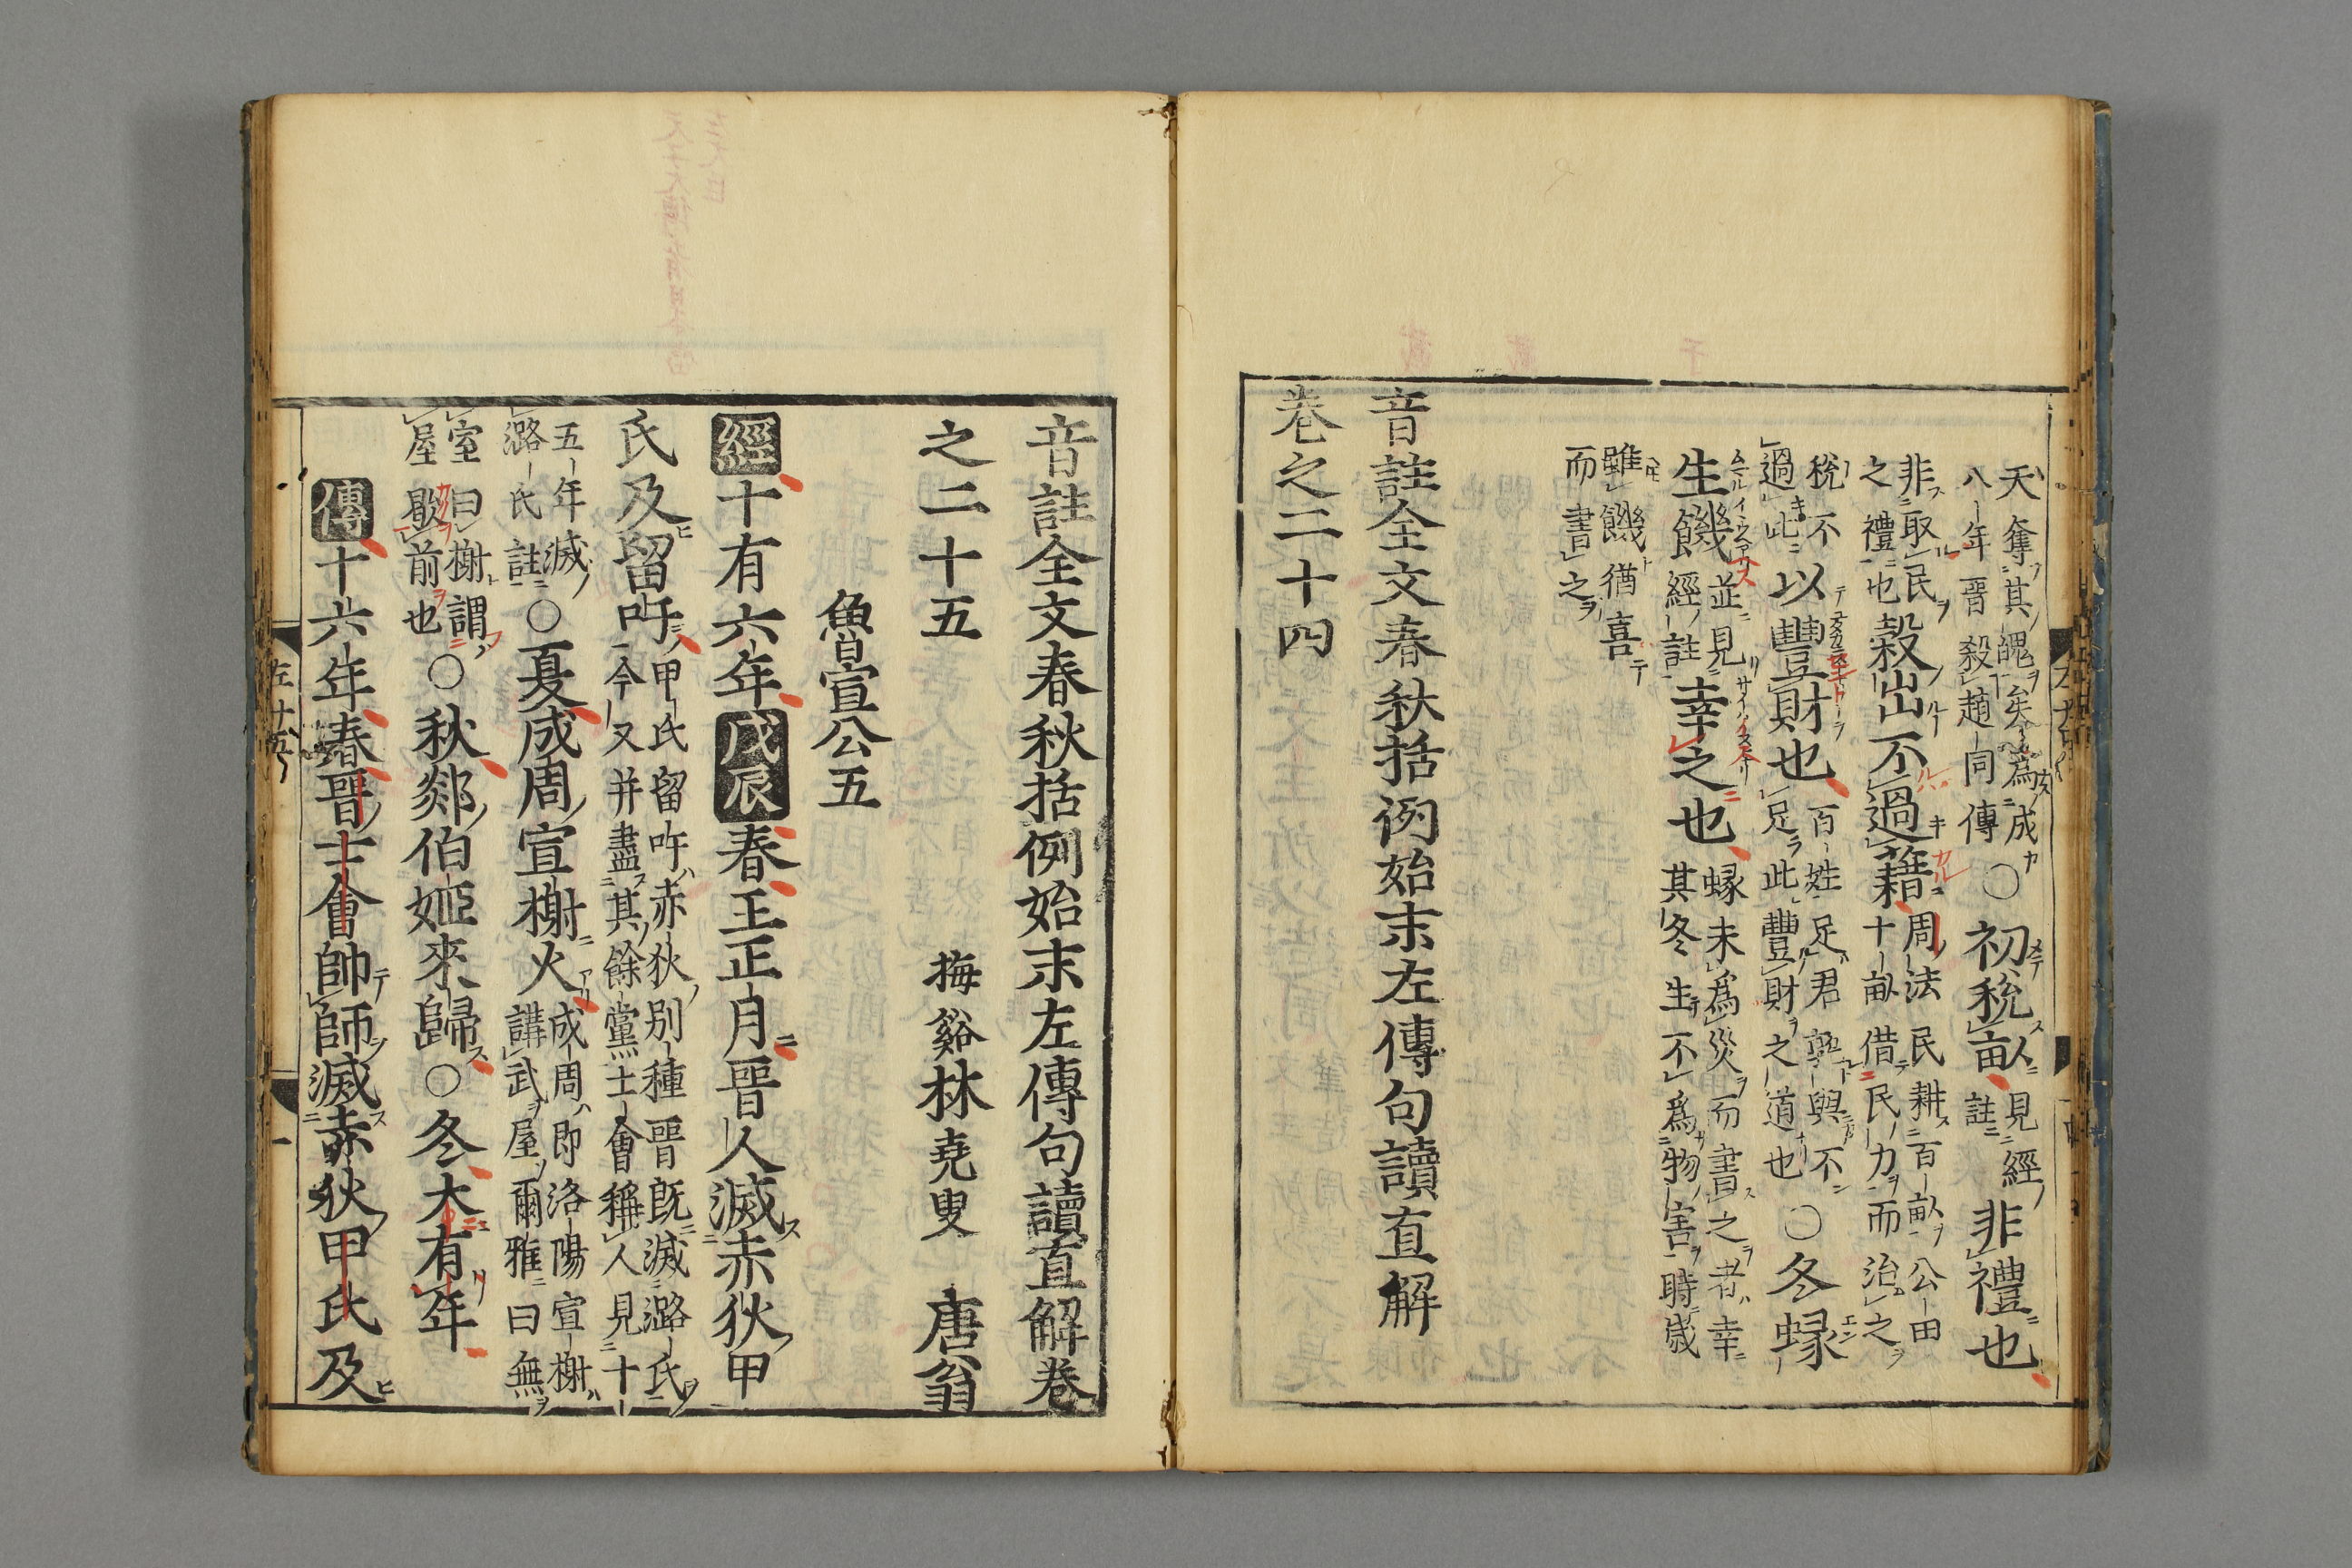 天奪其魄矣爲成
八年晉殺趙同傳
○初稅畝
見經
註
非禮也
非取民
之禮也
穀出不過藉
周法民耕百畝公田
十畝借民力而治之
稅不
過此
以豐財也
百姓足君孰與不
足此豐財之道也
○冬蝝
生饑
並見
經註
幸之也
蝝未爲災而書之者幸
其冬生不爲物害時歲
雖饑猶喜
而書之
音註全文春秋括例始末左傳句讀直解
卷之二十四
音註全文春秋括例始末左傳句讀直解卷
之二十五
梅谿林堯叟 唐翁
魯宣公五
經十有六年戊辰春王正月晉人滅赤狄甲
氏及留吁
甲氏留吁赤狄別種晉既滅潞氏
今又并盡其餘黨士會稱人見十
五年滅
潞氏註
○夏成周宣榭火
成周即洛陽宣榭
講武屋爾雅曰無
室曰榭謂
屋歇前也
○秋郯伯姬來歸○冬大有年
傳十六年春晉士會帥師滅赤狄甲氏及